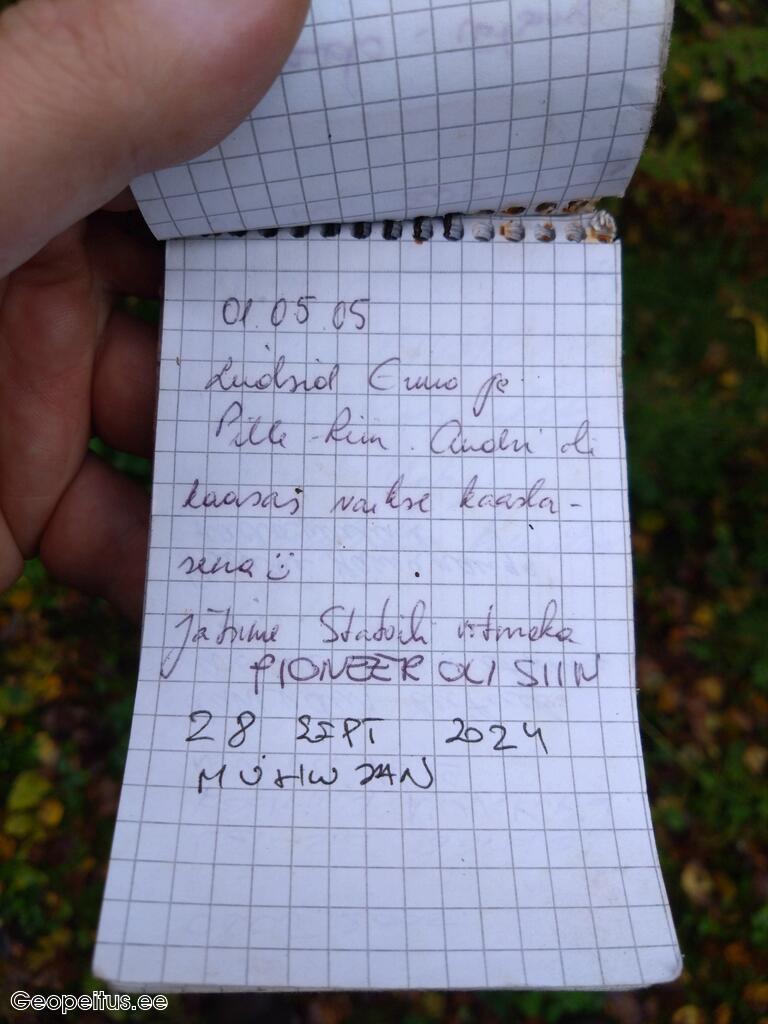 01.05.05
Leidsid Enno ja
Pille-Riin. Andri oli
kaasas väikse kaasla-
sena
Jätsime Statoili võtmeka
PIONEER OLI SIIN
28 SEPT 2024
Geopeitus.ee